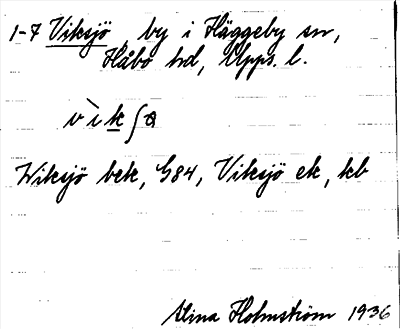 1-7 Viksjö, by i Häggeby sn,
Håbo hd, Upps. l.
vìkʃɑ
Wiksjö bek, G84, Viksjö ek, kb
Stina Holmström 1936